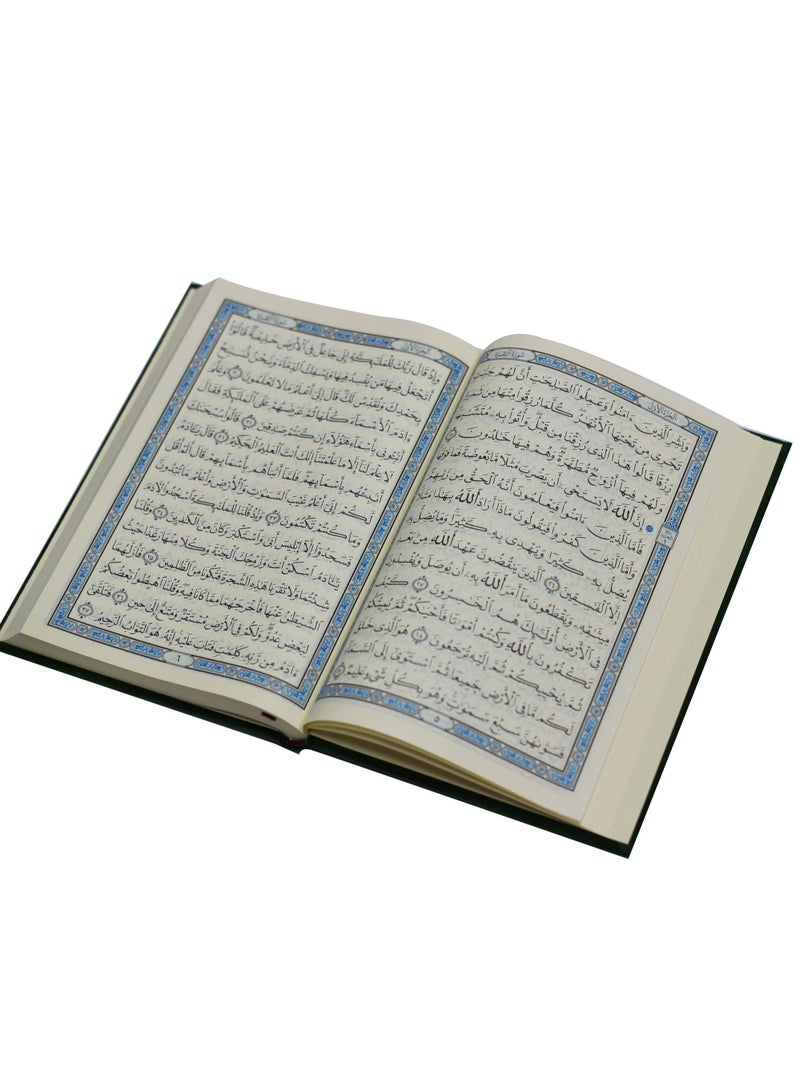 سُورَةُ البَقَرَةِ
الجُزْءُ الأَوَّلُ
وَبَشِّرِ ٱلَّذِينَ ءَامَنُواْ وَعَمِلُواْ ٱلصَّٰلِحَٰتِ أَنَّ لَهُمْ
تَجْرِى مِن تَحْتِهَا ٱلْأَنْهَٰرُ كُلَّمَا رُزِقُواْ مِنْهَا مِن
رِّزْقًا قَالُواْ هَٰذَا ٱلَّذِى رُزِقْنَا مِن قَبْلُ وَأُتُواْ بِهِۦ
وَلَهُمْ فِيهَآ أَزْوَٰجٌ مُّطَهَّرَةٌ وَهُمْ فِيهَا خَٰلِدُونَ ٢٥
۞ إِنَّ ٱللَّهَ لَا يَسْتَحْىِۦٓ أَن يَضْرِبَ مَثَلًا مَّا بَعُوضَةً فَمَا
فَأَمَّا ٱلَّذِينَ ءَامَنُواْ فَيَعْلَمُونَ أَنَّهُ ٱلْحَقُّ مِن رَّبِّهِمْ
وَأَمَّا ٱلَّذِينَ كَفَرُواْ فَيَقُولُونَ مَاذَآ أَرَادَ ٱللَّهُ بِهَٰذَا
يُضِلُّ بِهِۦ كَثِيرًا وَيَهْدِى بِهِۦ كَثِيرًا وَمَا يُضِلُّ بِهِۦٓ
إِلَّا ٱلْفَٰسِقِينَ ٢٦ ٱلَّذِينَ يَنقُضُونَ عَهْدَ ٱللَّهِ مِنۢ
مِيثَٰقِهِۦ وَيَقْطَعُونَ مَآ أَمَرَ ٱللَّهُ بِهِۦٓ أَن يُوصَلَ وَيُفْسِدُونَ
فِى ٱلْأَرْضِ أُوْلَٰٓئِكَ هُمُ ٱلْخَٰسِرُونَ ٢٧
تَكْفُرُونَ بِٱللَّهِ وَكُنتُمْ أَمْوَٰتًا فَأَحْيَٰكُمْ ثُمَّ يُمِيتُكُمْ
ثُمَّ يُحْيِيكُمْ ثُمَّ إِلَيْهِ تُرْجَعُونَ ٢٨ هُوَ ٱلَّذِى
لَكُم مَّا فِى ٱلْأَرْضِ جَمِيعًا ثُمَّ ٱسْتَوَىٰٓ إِلَى
فَسَوَّىٰهُنَّ سَبْعَ سَمَٰوَٰتٍ وَهُوَ بِكُلِّ شَىْءٍ عَلِيمٌ ٢٩
٥
الجُزْءُ الأَوَّلُ
سُورَةُ البَقَرَةِ
وَإِذْ قَالَ رَبُّكَ لِلْمَلَٰٓئِكَةِ إِنِّى جَاعِلٌ فِى ٱلْأَرْضِ خَلِيفَةً قَالُوٓاْ
أَتَجْعَلُ فِيهَا مَن يُفْسِدُ فِيهَا وَيَسْفِكُ ٱلدِّمَآءَ وَنَحْنُ نُسَبِّحُ
بِحَمْدِكَ وَنُقَدِّسُ لَكَ قَالَ إِنِّىٓ أَعْلَمُ مَا لَا تَعْلَمُونَ ٣٠ وَعَلَّمَ
ءَادَمَ ٱلْأَسْمَآءَ كُلَّهَا ثُمَّ عَرَضَهُمْ عَلَى ٱلْمَلَٰٓئِكَةِ فَقَالَ
أَنۢبِـُٔونِى بِأَسْمَآءِ هَٰٓؤُلَآءِ إِن كُنتُمْ صَٰدِقِينَ ٣١ قَالُواْ سُبْحَٰنَكَ
لَا عِلْمَ لَنَآ إِلَّا مَا عَلَّمْتَنَآ إِنَّكَ أَنتَ ٱلْعَلِيمُ ٱلْحَكِيمُ ٣٢ قَالَ يَٰٓـَٔادَمُ
أَنۢبِئْهُم بِأَسْمَآئِهِمْ فَلَمَّآ أَنۢبَأَهُم بِأَسْمَآئِهِمْ قَالَ أَلَمْ أَقُل
لَّكُمْ إِنِّىٓ أَعْلَمُ غَيْبَ ٱلسَّمَٰوَٰتِ وَٱلْأَرْضِ وَأَعْلَمُ مَا تُبْدُونَ
وَمَا كُنتُمْ تَكْتُمُونَ ٣٣ وَإِذْ قُلْنَا لِلْمَلَٰٓئِكَةِ ٱسْجُدُواْ لِـَٔادَمَ
فَسَجَدُوٓاْ إِلَّآ إِبْلِيسَ أَبَىٰ وَٱسْتَكْبَرَ وَكَانَ مِنَ ٱلْكَٰفِرِينَ ٣٤ وَقُلْنَا
يَٰٓـَٔادَمُ ٱسْكُنْ أَنتَ وَزَوْجُكَ ٱلْجَنَّةَ وَكُلَا مِنْهَا رَغَدًا حَيْثُ
شِئْتُمَا وَلَا تَقْرَبَا هَٰذِهِ ٱلشَّجَرَةَ فَتَكُونَا مِنَ ٱلظَّٰلِمِينَ ٣٥ فَأَزَلَّهُمَا
ٱلشَّيْطَٰنُ عَنْهَا فَأَخْرَجَهُمَا مِمَّا كَانَا فِيهِ وَقُلْنَا ٱهْبِطُواْ بَعْضُكُمْ
لِبَعْضٍ عَدُوٌّ وَلَكُمْ فِى ٱلْأَرْضِ مُسْتَقَرٌّ وَمَتَٰعٌ إِلَىٰ حِينٍ ٣٦ فَتَلَقَّىٰٓ
ءَادَمُ مِن رَّبِّهِۦ كَلِمَٰتٍ فَتَابَ عَلَيْهِ إِنَّهُۥ هُوَ ٱلتَّوَّابُ ٱلرَّحِيمُ ٣٧
٦